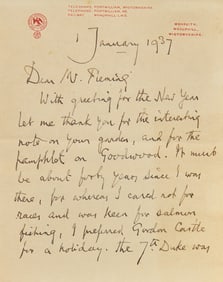 TELEGRAMS, PORTWILLIAM, WIGTOWNSHIRE.
TELEPHONE, PORTWILLIAM,
RAILWAY
MONREITH,
WIGTOWNSHIRE.
1 January 1937
Dear Mr. Fleming
With greeting for the New Year
let me thank you for the interesting
note on your garden, and for the
pamphlet on Goodwood. It must
be about forty years since I was
there, for whereas I cared not for
races and was keen for salmon
fishing, I preferred Gordon Castle
for a holiday. The 7th Duke was